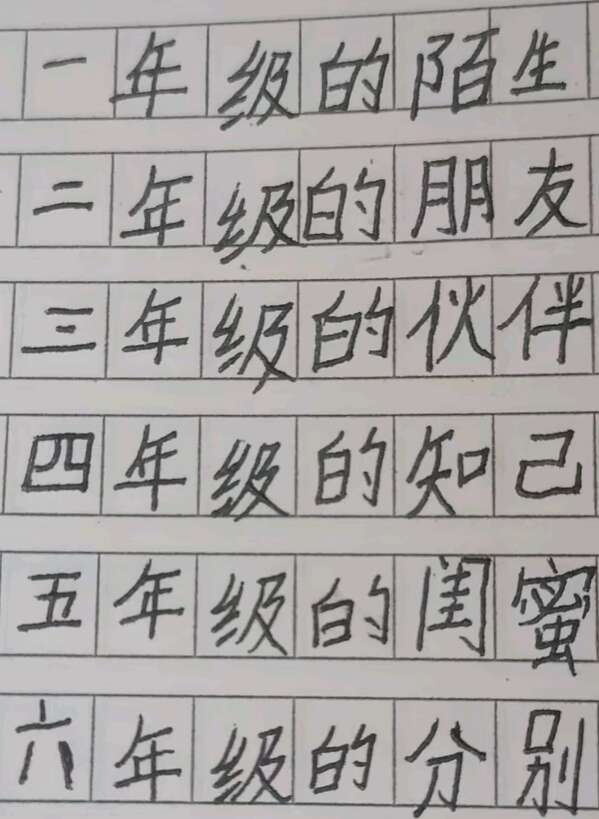 一年级的陌生
二年级的朋友
三年级的伙伴
四年级的知己
五年级的闺蜜
六年级的分别